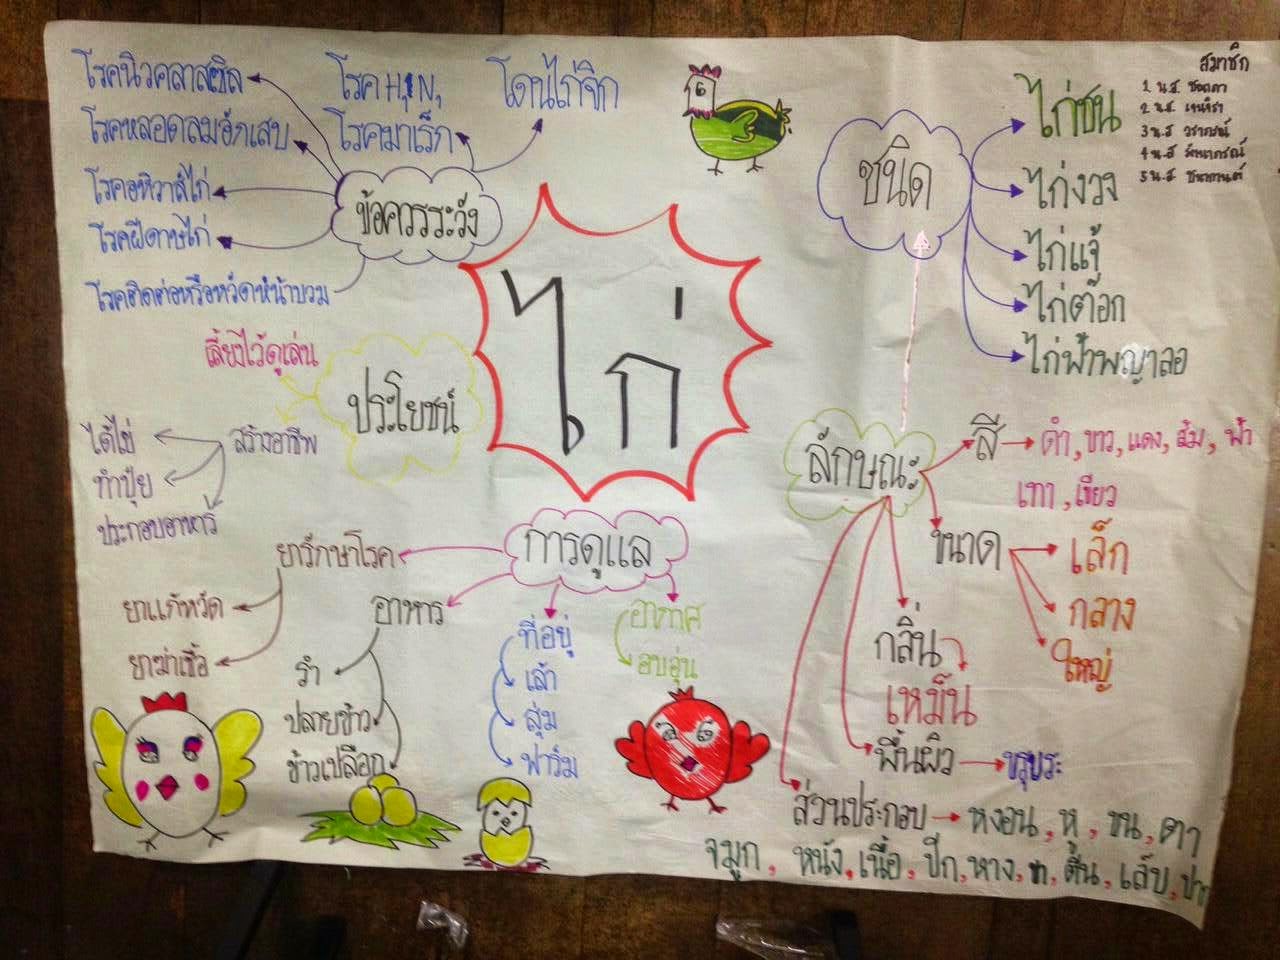 โรคนิวคลาสซิล
โรคหลอดลมอักเสบ
โรคอหิวาส์ไก่
โรคฝีดาษไก่
โรคติดต่อหรือหวัดหน้าบวม
โรค H1N1
โรคมาเร็ก
โดนไก่จิก
ข้อควรระวัง
ไก่
ชนิด
ไก่ชน
ไก่งวง
ไก่แจ้
ไก่ต๊อก
ไก่ฟ้าพญาลอ
สมาชิก
1. น.ส.
2. น.ส.
3 น.ส
4 น.ส
5 น.ส
เลี้ยงไว้ดูเล่น
ประโยชน์
สร้างอาชีพ
ได้ไข่
ทำปุ๋ย
ประกอบอาหาร
ลักษณะ
สี
ดำ, ขาว, แดง, ส้ม, ฟ้า
เทา, เขียว
ขนาด
เล็ก
กลาง
ใหญ่
กลิ่น
เหม็น
พื้นผิว
ขรุขระ
ส่วนประกอบ
หงอน, หู, ขน, ตา
จมูก, หนัง, เนื้อ, ปีก, หาง, ตีน, เล็บ, ปาก
การดูแล
ยารักษาโรค
ยาแก้หวัด
ยาฆ่าเชื้อ
อาหาร
รำ
ปลายข้าว
ข้าวเปลือก
ที่อยู่
เล้า
สุ่ม
ฟาร์ม
อากาศ
อบอุ่น